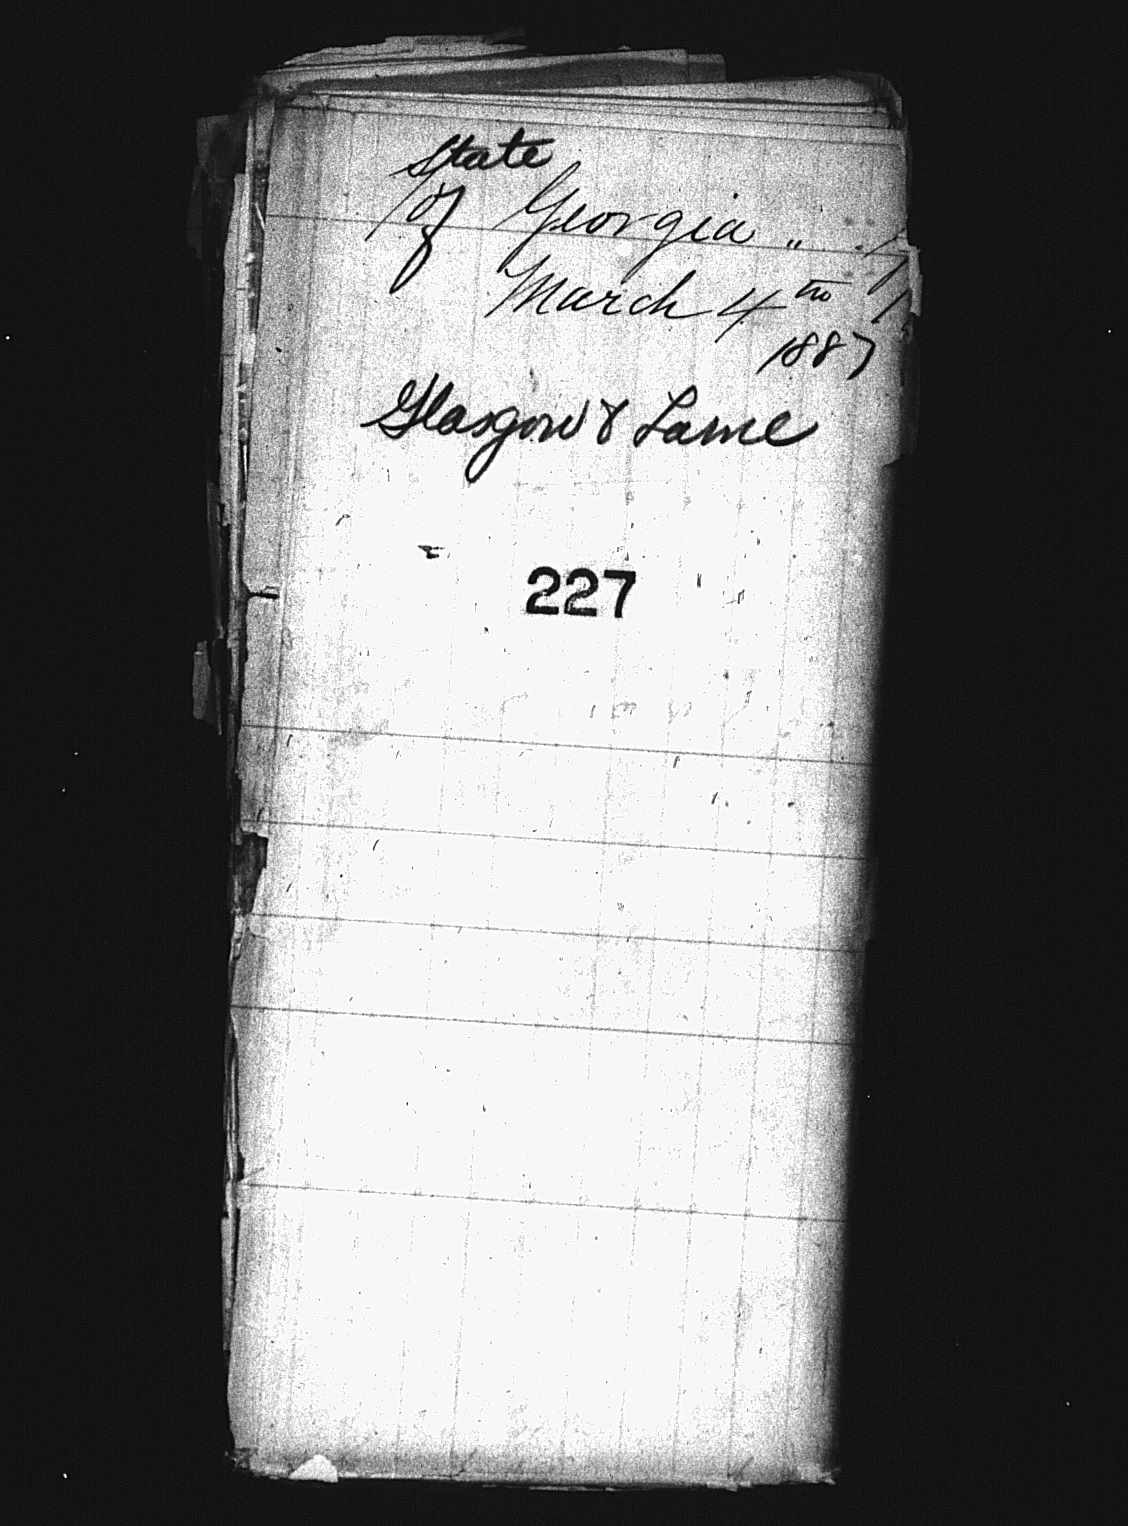 State
of Georgia "
March 4th
1887
Glasgow &
227